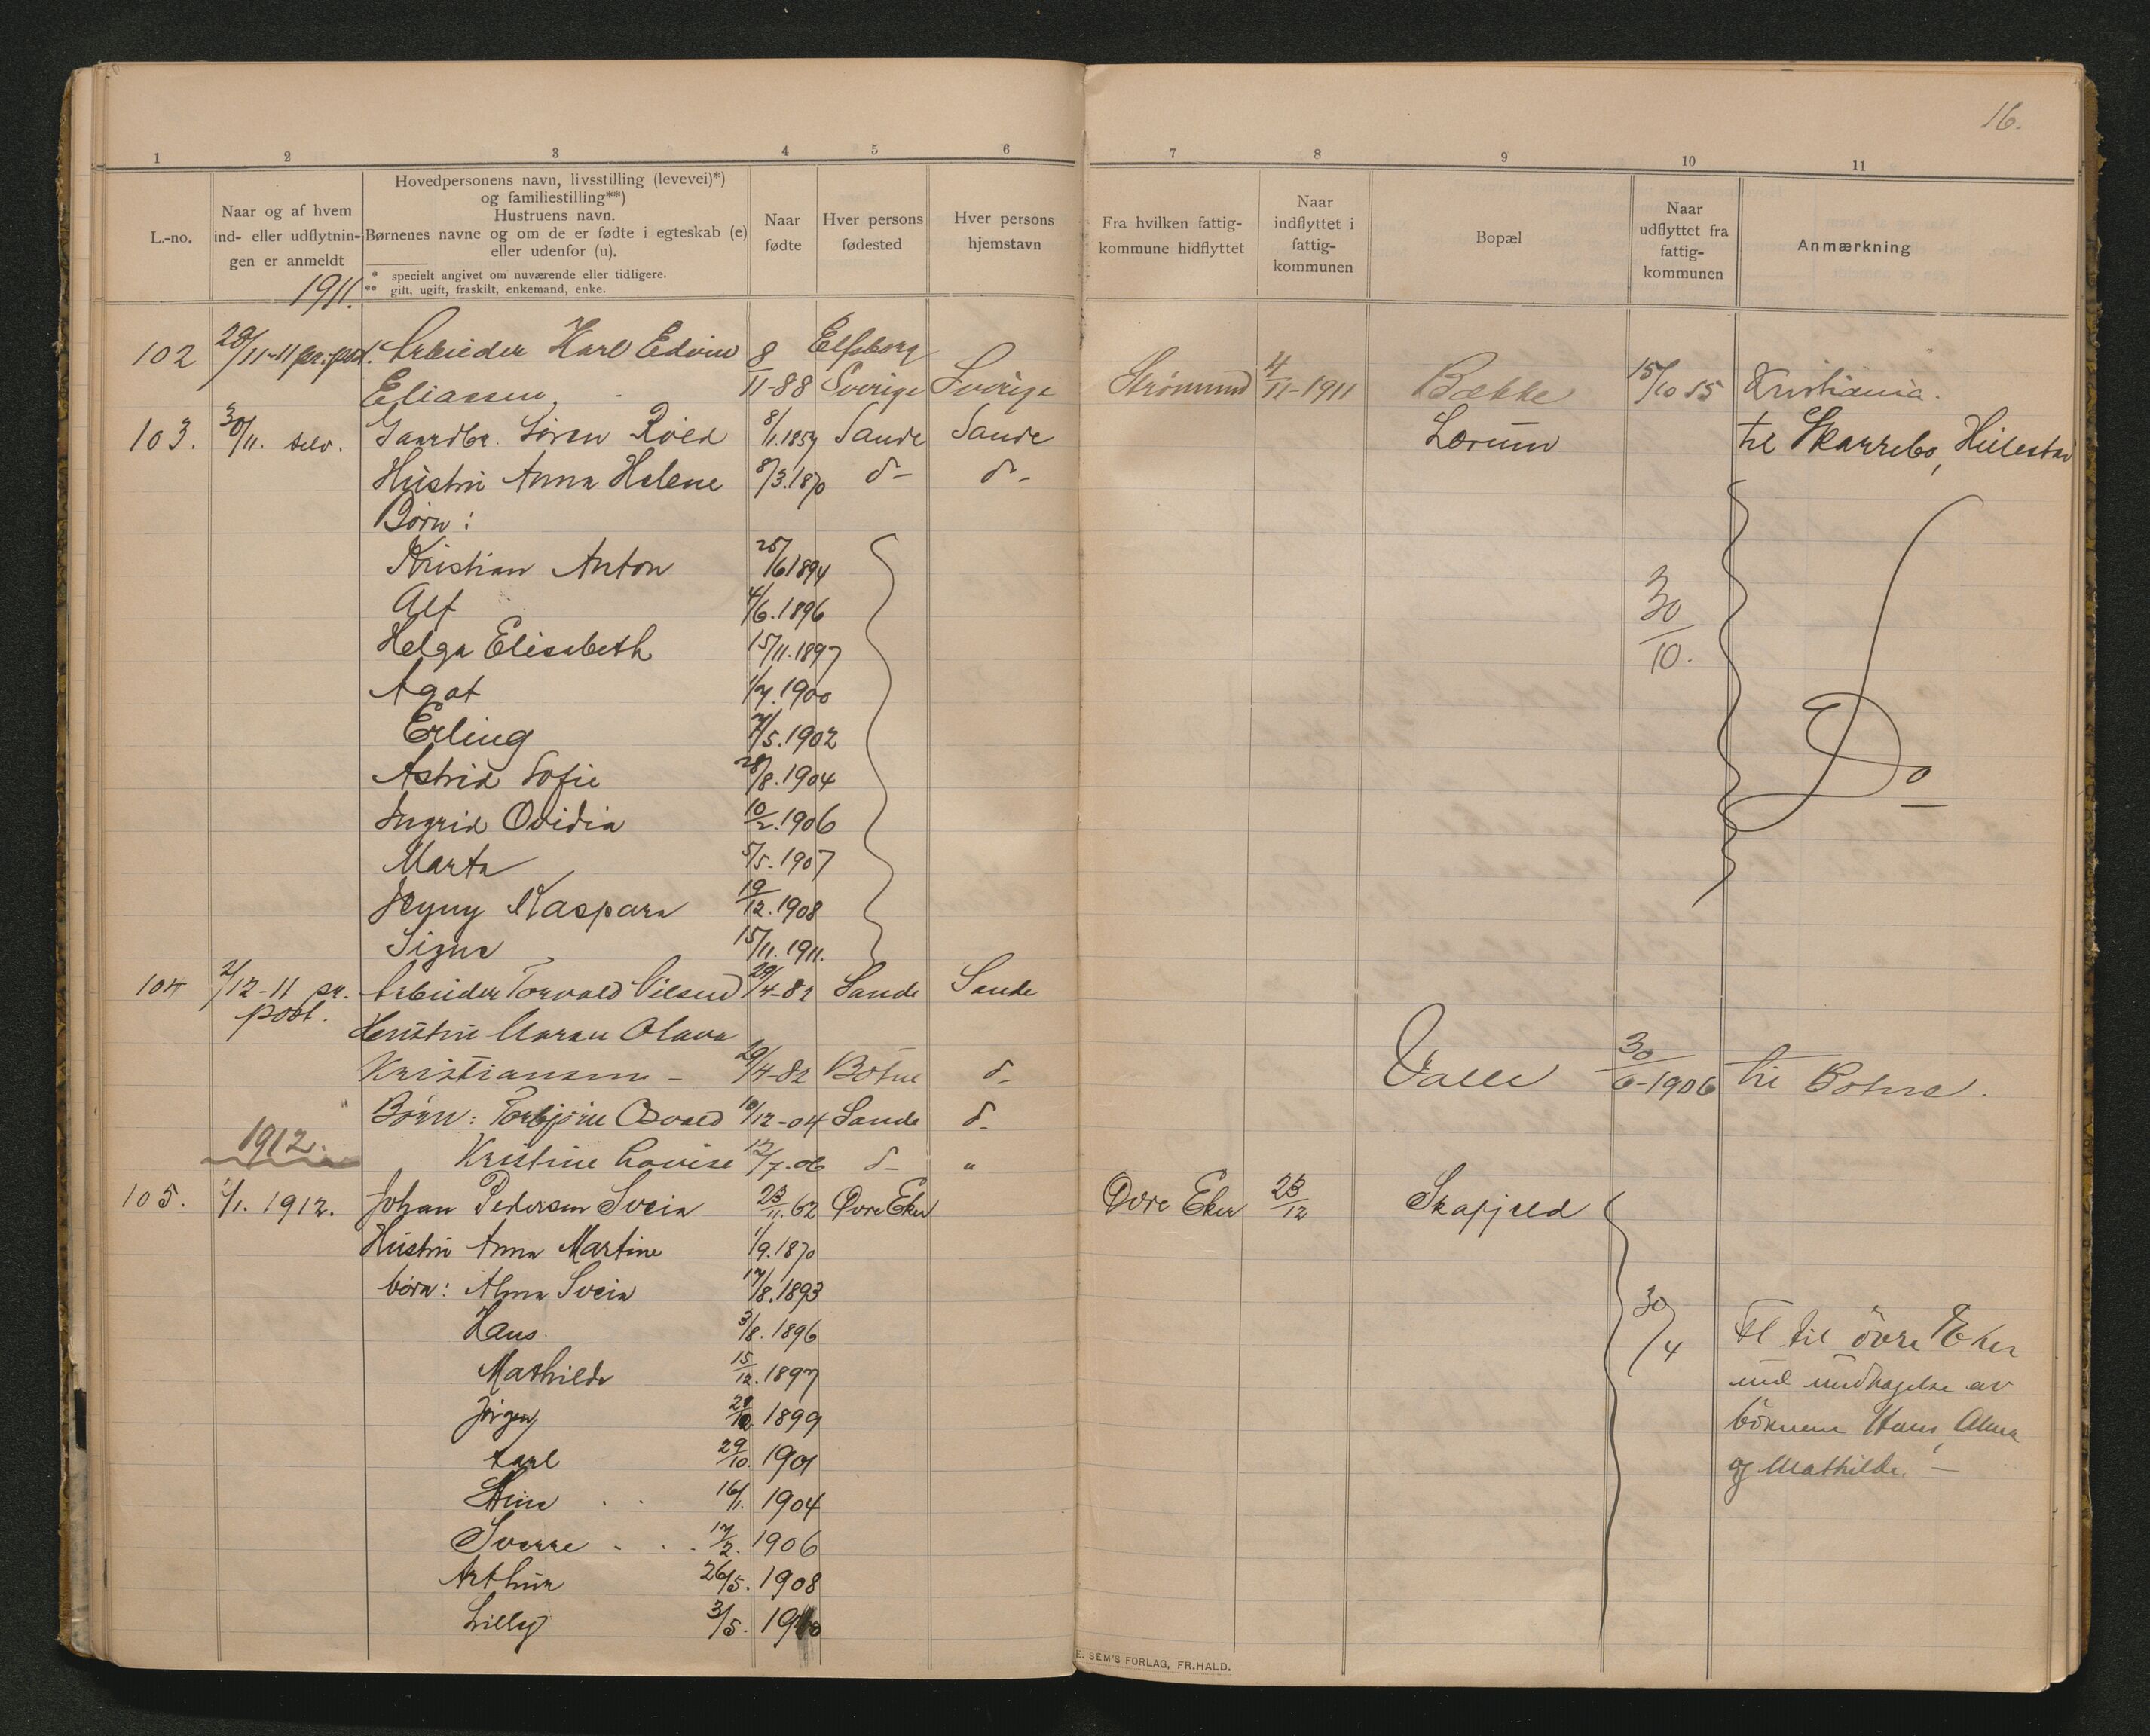 16.
1 2 3 4 5 6 7 8 9 10 11
L.-no.
Naar og af hvem
ind- eller udflytnin-
gen er anmeldt
1911.
Hovedpersonens navn, livsstilling (levevei)*)
og familiestilling**)
Hustruens navn.
Børnenes navne og om de er fødte i egteskab (e)
eller udenfor (u).
* specielt angivet om nuværende eller tidligere.
** gift, ugift, fraskilt, enkemand, enke.
Naar
fødte
Hver persons
fødested
Hver persons
hjemstavn
Fra hvilken fattig-
kommune hidflyttet
Naar
indflyttet i
fattig-
kommunen
Bopæl
Naar
udflyttet fra
fattig-
kommunen
Anmærkning
102 20/11-11 pr. post. Arbeider Karl Edvin 8 Elfsborg
Eliassen, 11-88 Sverige Sverige Strömmen 4/11-1911 Bække 15/10 15 Kristiania.
103. 30/11. selv. Gaardbr. Sören Röed 8/1.1857 Sande Sande Lorum til Skarrebo, Hillestad
Hustru Anna Helene 8/3.1870 d- d-
Börn:
Kristian Anton 25/6 1894
Alf 4/6.1896 30/10.
Helga Elisabeth 15/11.1897
Agot 1/7.1900
Erling 7/5.1902
Astrid Sofie 28/8.1904 Do
Ingrid Ovidia 10/2.1906
Marta 5/5.1907
Jenny Kaspara 19/12.1908
Signe 15/11.1911.
104 2/12-11 pr. Arbeider Torvald Nilsen 29/4-82 Sande Sande
post.
Hustru Maren Olava
Kristiansen - 29/4-82 Botne d- Valle 30/6-1906 til Botne.
Börn: Torbjörn Osvald 10/12-04 Sande d-
1912. Kristine Lovise 12/7.06 d- "
105. 1/1. 1912. Johan Pedersen Sveia 23/11.62 Övre Eker Övre Eker 23/12 Skafjeld
Hustru Anna Martine 1/9.1870
börn: Alma Sveia 17/8.1893
Hans. 3/8.1896 30/4 Fl til övre Eker
Mathilde 15/12.1897 med undtagelse av
Jörgen 1899 börnene Hans, Alma
Karl 29/10. 1901 og Mathilde. -
16/1. 1904
Sverre 17/2. 1906
Arthur 26/5. 1908
Lilly 3/5. 1910
E. SEM'S FORLAG, FR.HALD.